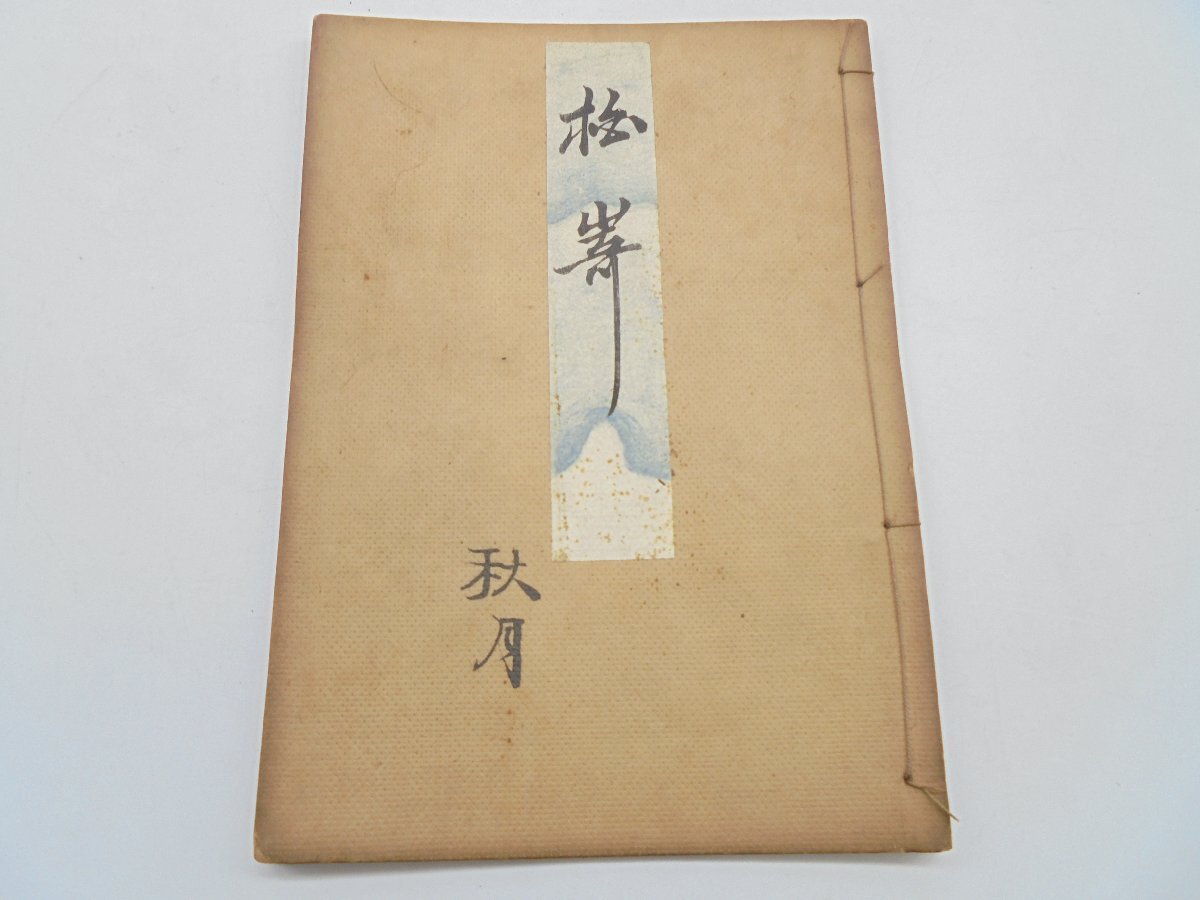 松嵜
秋月